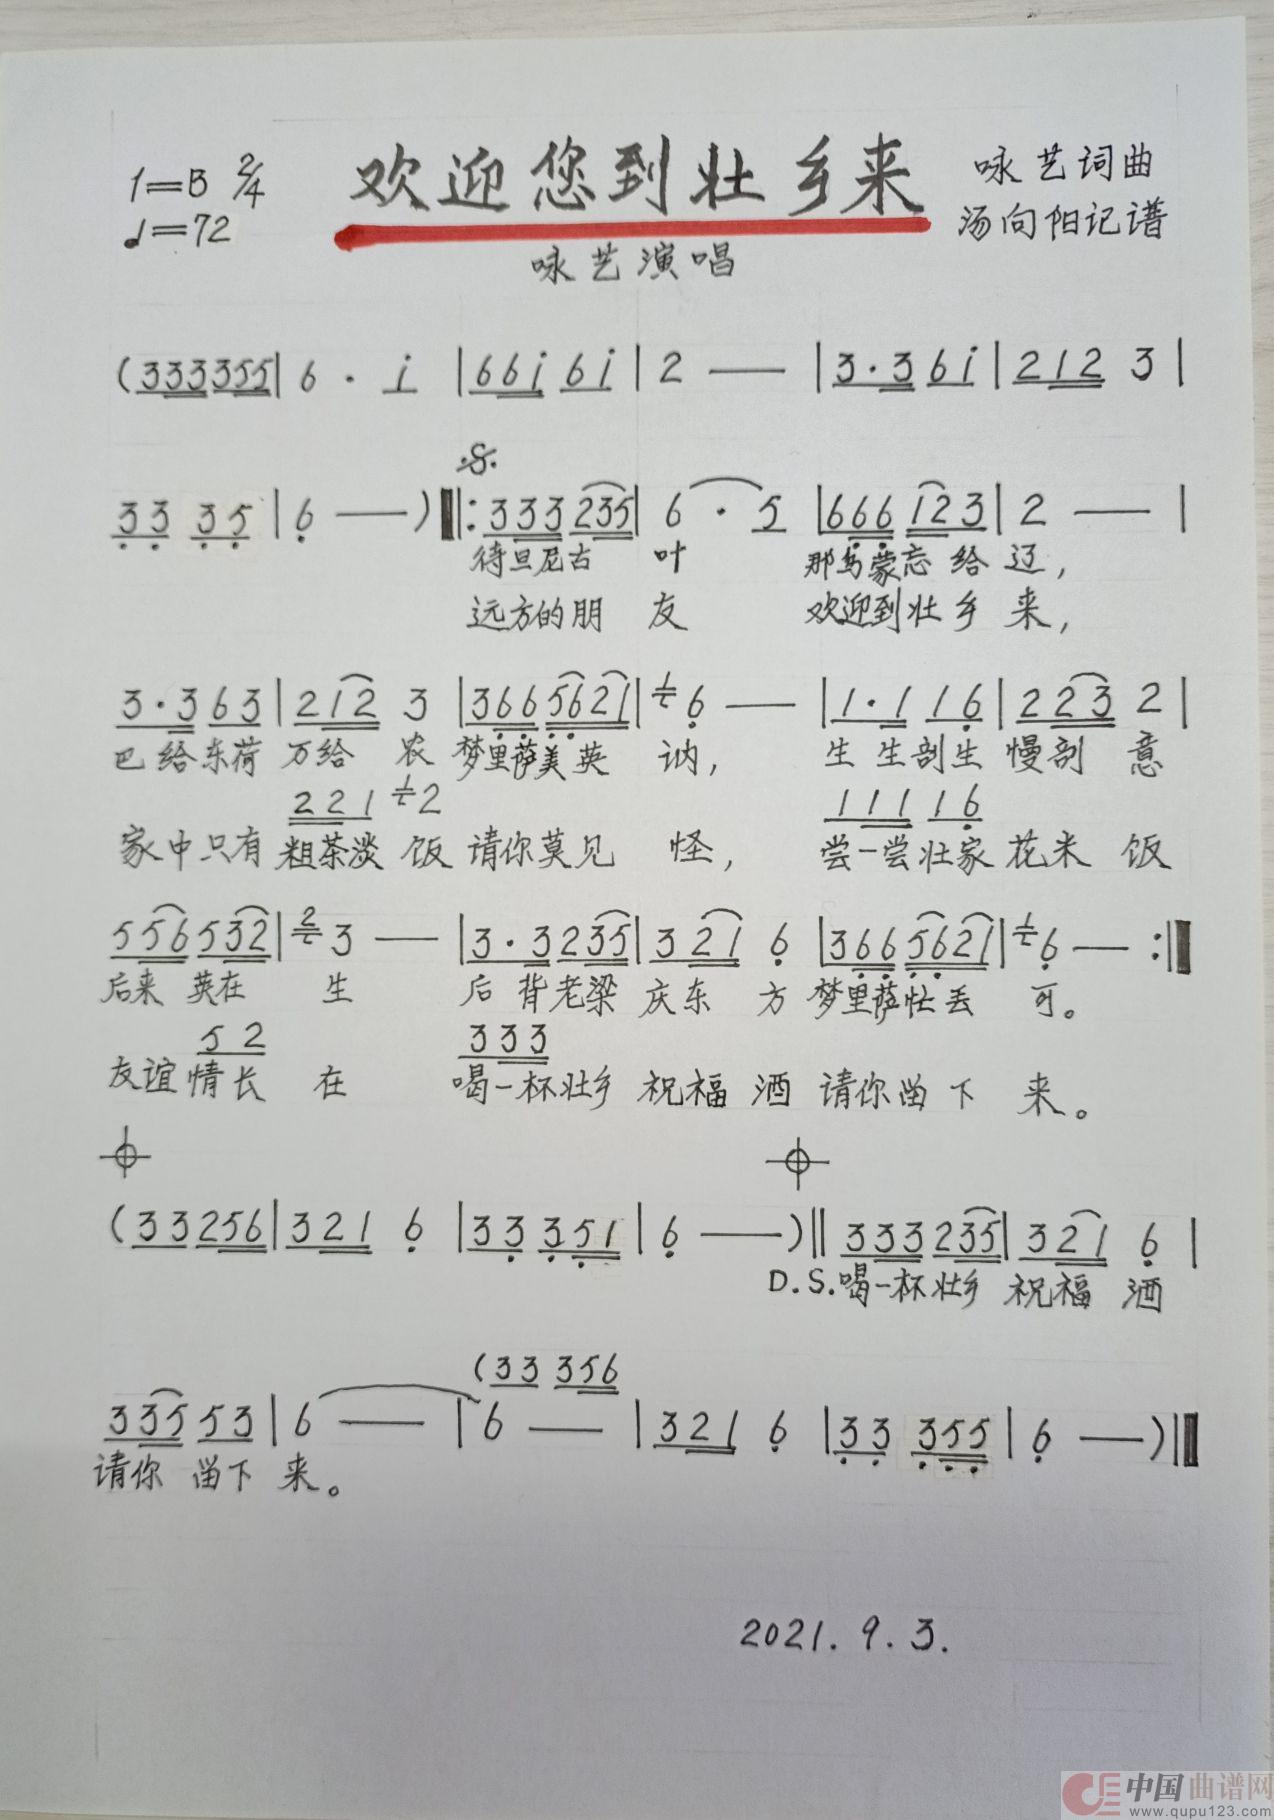 1=B 2/4 欢迎您到壮乡来 咏艺词曲
♩=72 汤向阳记谱
咏艺演唱
(333355|6·i|66i6i|2—|3·36i|2123|
3335|6—)‖:333235|6·5|666123|2—|
待旦尼古 叶 那鸟蒙忘给辽,
远方的朋 友 欢迎到壮乡 来,
3·363|2123|3665621|1 6—|1·116|2232|
巴给东荷 万给 农 梦里萨美英 讷, 生生剖生 慢剖 意
221 2 111 16
家中只有粗茶淡饭 请你莫见 怪, 尝一尝壮家花米饭
556532|2 3—|3·3235|3216|3665621|1 6—:‖
后来 英在 生 后背老梁 庆东 方 梦里萨忙丢 可。
52 333
友谊情长 在 喝一杯壮乡 祝福酒 请你留下 来。
(33256|3216|33351|6—)‖333235|3216|
D.S.喝一杯壮乡 祝福 酒
(33 356
33553|6—|6—|3216|33355|6—)‖
请你 留下 来。
2021.9.3.
中国曲谱网
www.qupu123.com